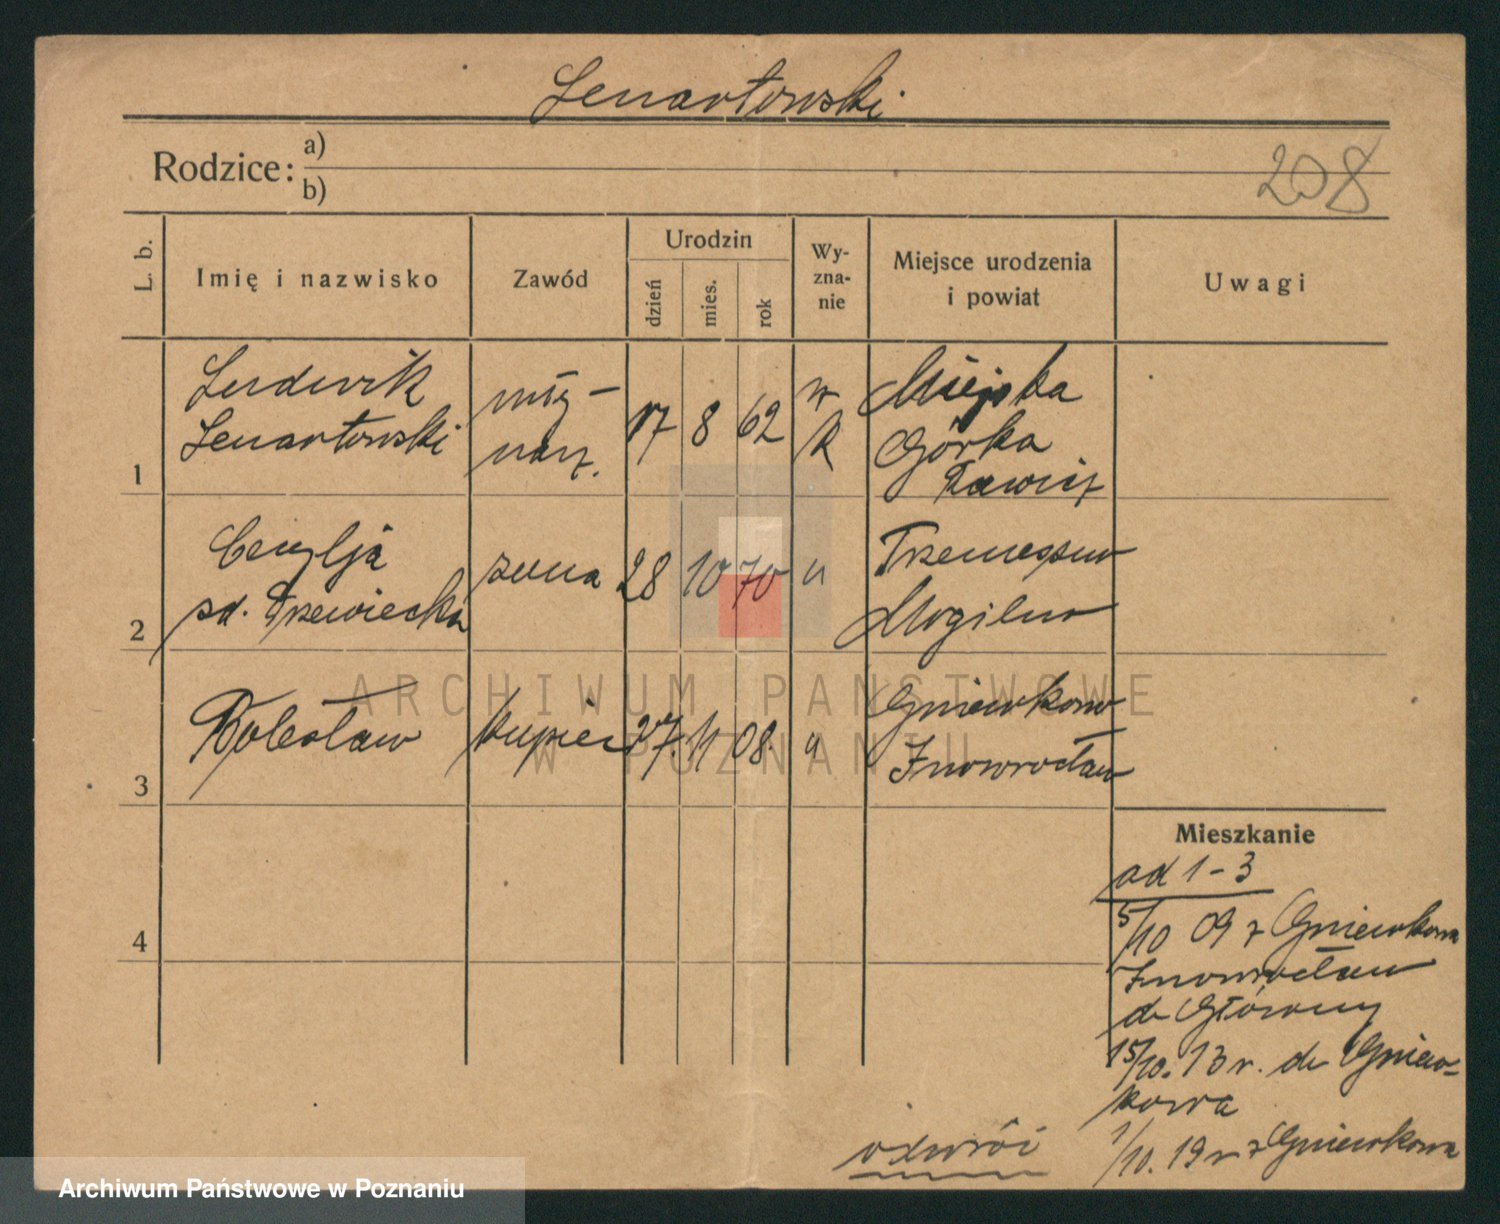 Lenartowski
Rodzice: a)
b)
208
L. b.
Imię i nazwisko
Zawód
Urodzin
dzień
mies.
rok
Wy-
zna-
nie
Miejsce urodzenia
i powiat
Uwagi
1
Ludwik
Lenartowski
mły-
narz.
17 8 62
r
k
Miejska
Górka
Rawicz
2
Cecylja
zd. Drzewiecka
żona
28 10 70
"
Trzemeszno
Mogilno
3
Bolesław
kupiec
27. 11 08.
"
Gniewkowo
Inowrocław
4
Mieszkanie
ad 1-3
5/10 09 z Gniewkowa
Inowrocław
do Główny
15/10. 13 r. do Gniew-
kowa
1/10. 19 r z Gniewkowa
odwróć
ARCHIWUM PAŃSTWOWE
W POZNANIU
Archiwum Państwowe w Poznaniu